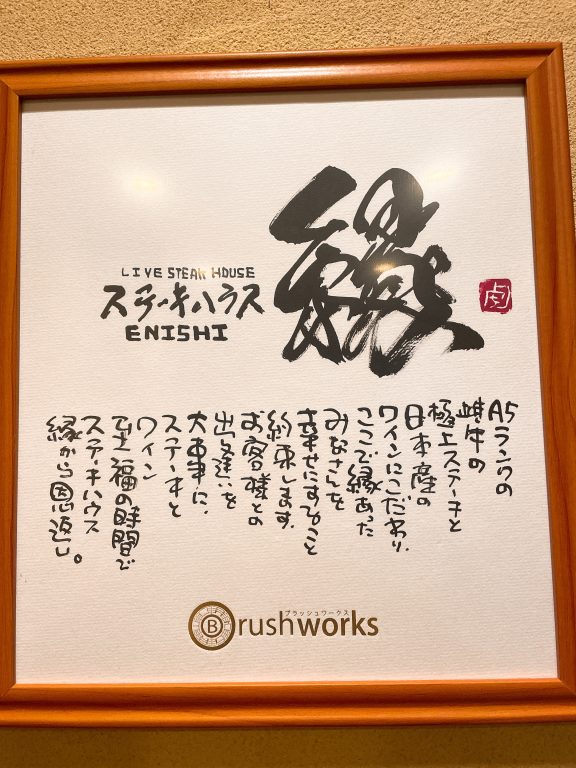 縁
LIVE STEAK HOUSE
ステーキハウス
ENISHI
A5ランクの
雌牛の
極上ステーキと
日本産の
ワインにこだわり、
ここで縁あった
みなさんを
幸せにすること
約束します。
お客様との
出逢いを
大事に、
ステーキと
ワイン
至福の時間で
ステーキハウス
縁から恩返し。
ブラッシュワークス
Brushworks